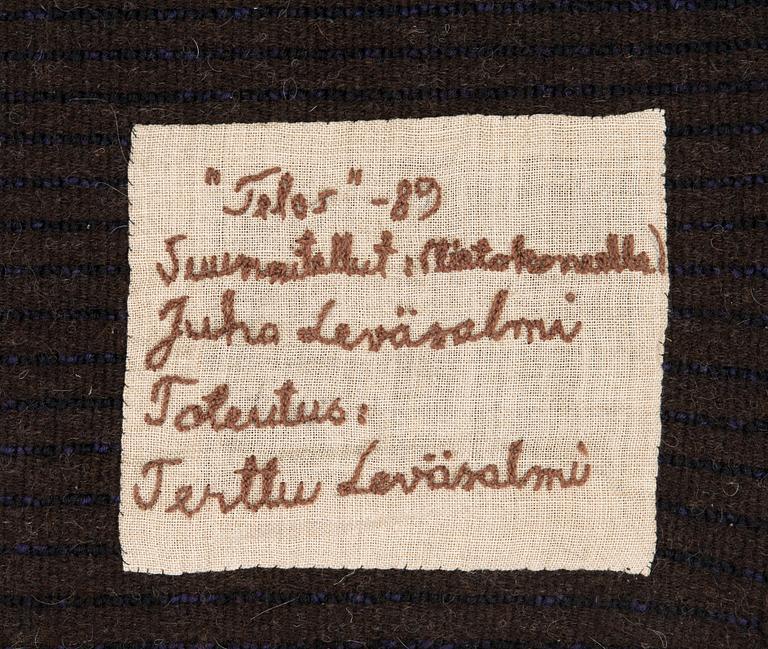 "Telos" -89
Suunnitellut: (tietokoneella)
Juha Leväsalmi
Toteutus:
Terttu Leväsalmi